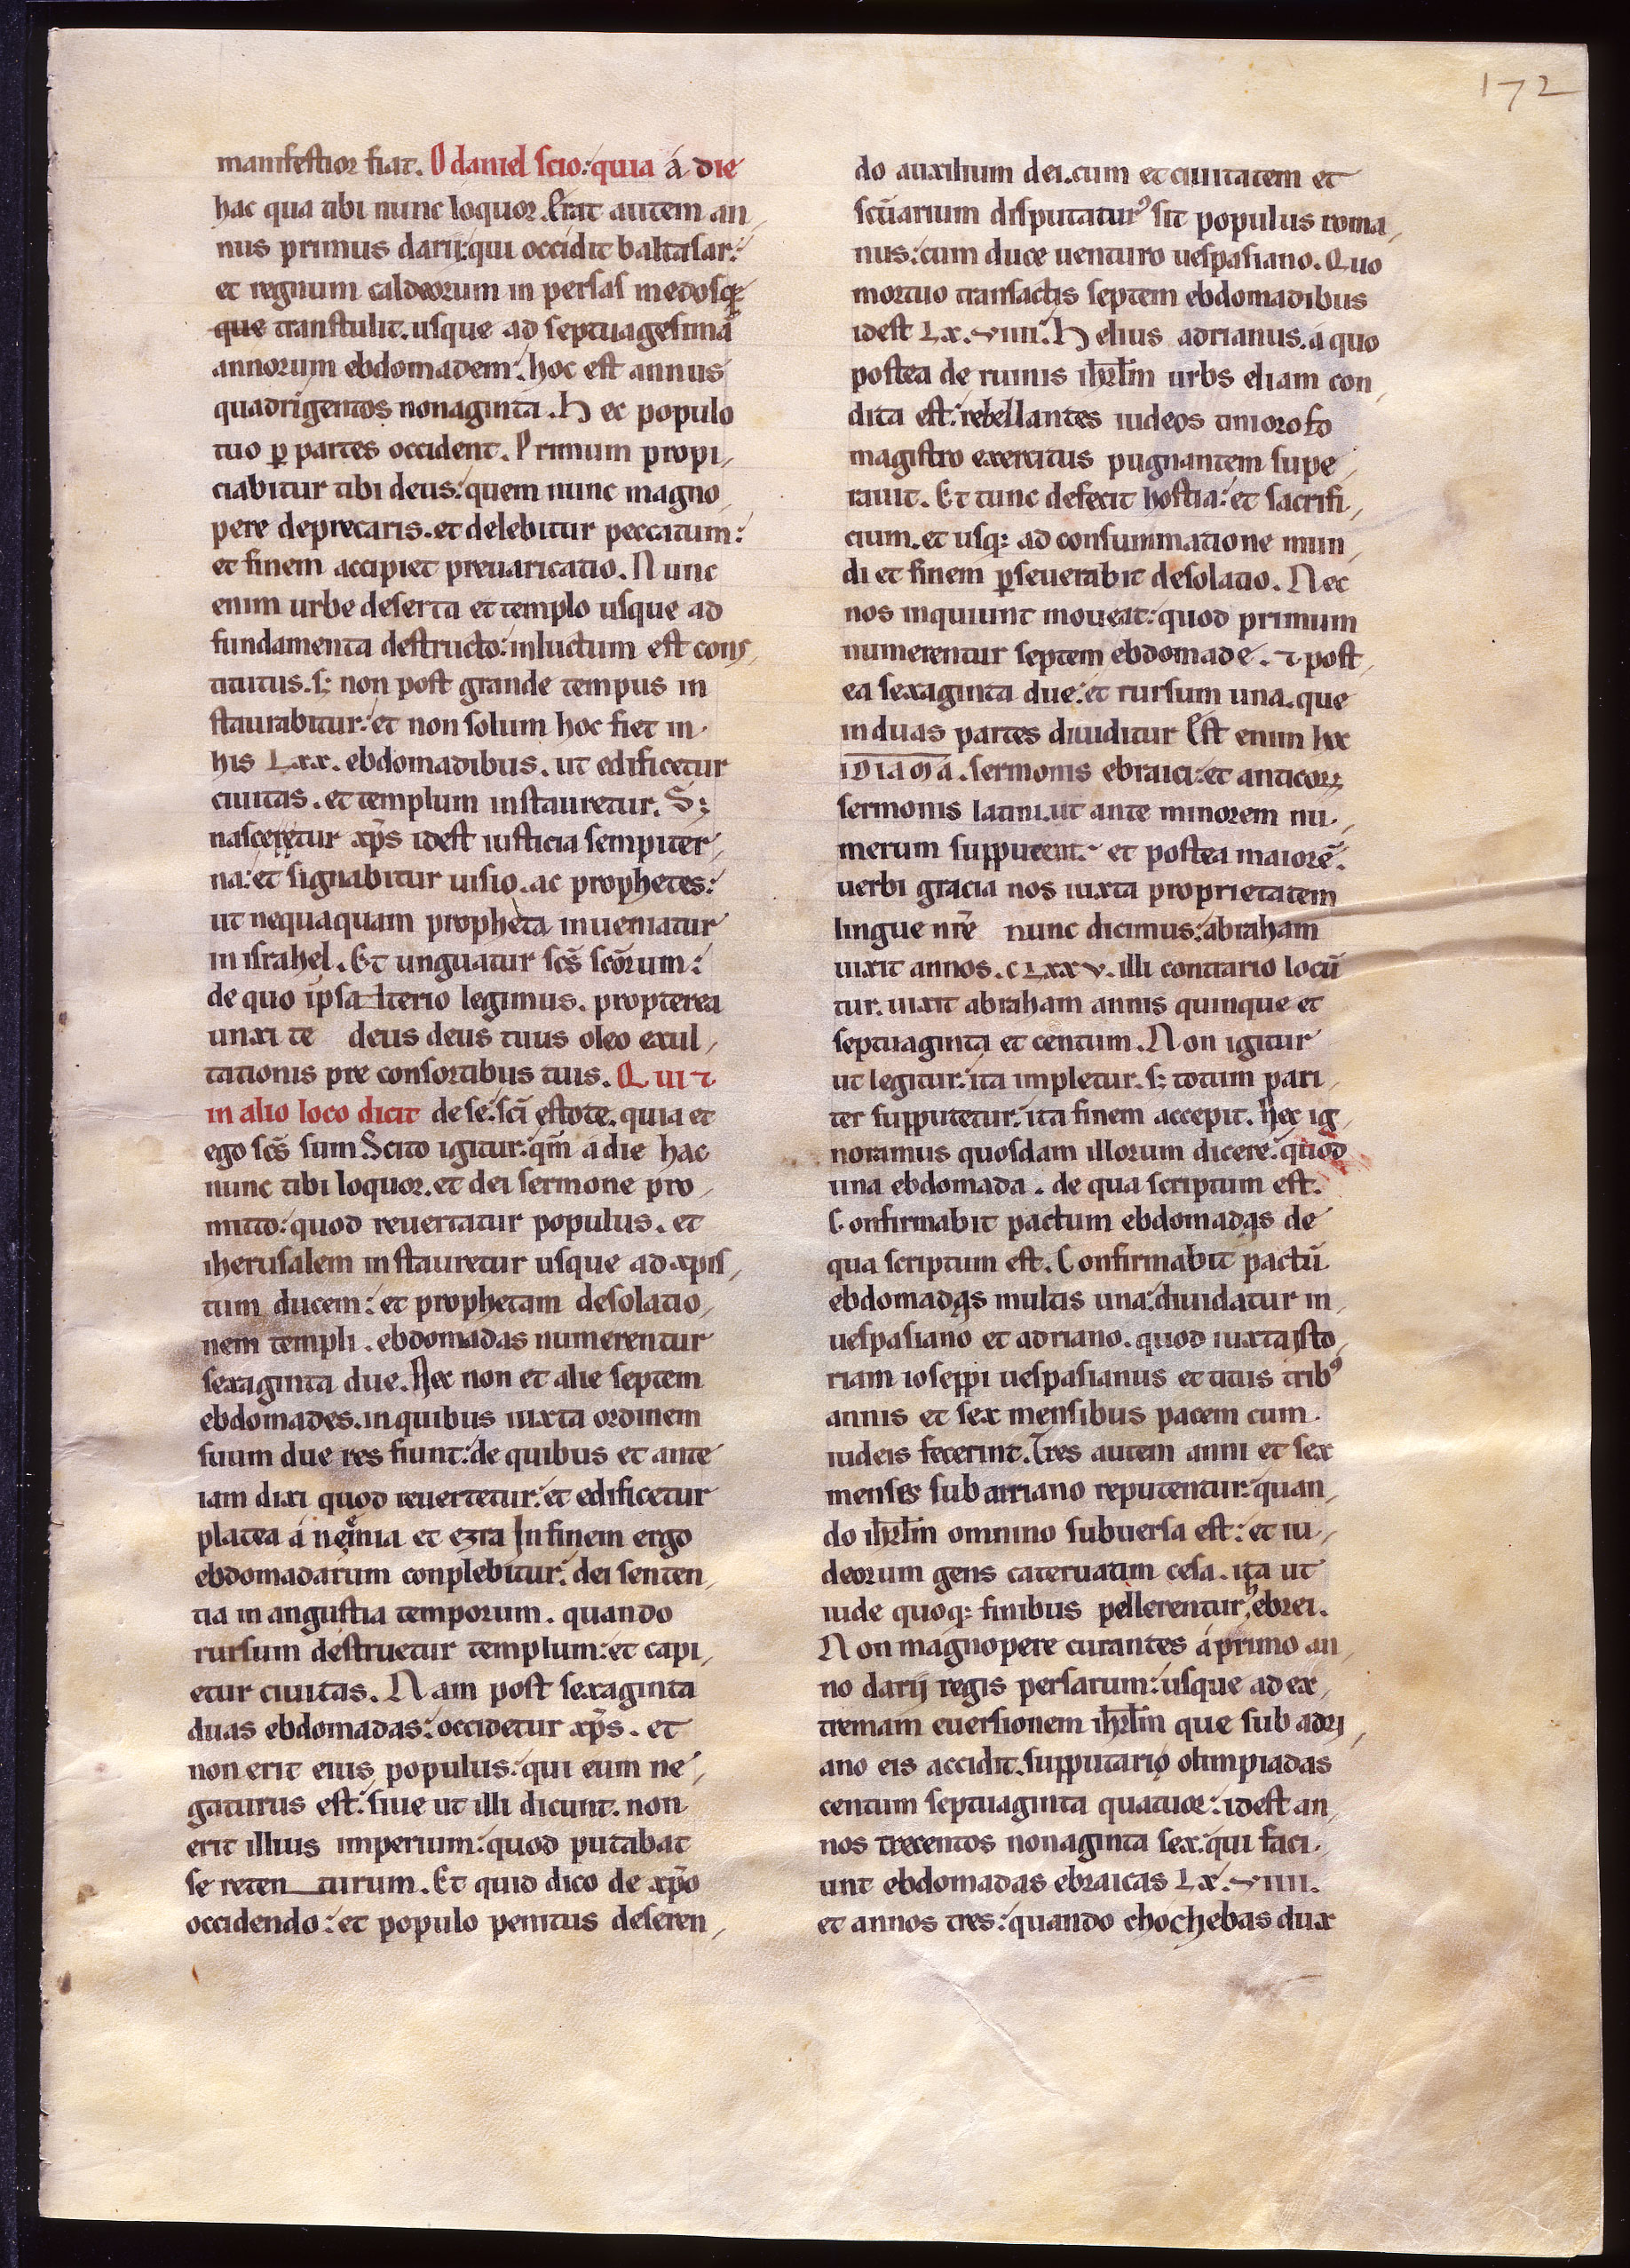 172
manifestior fiat. O daniel scio: quia á die
hac qua tibi nunc loquor. Erat autem an,
nus primus darii: qui occidit baltasar:
et regnum caldeorum in persas medosq;
que transtulit. usque ad septuagesimā
annorum ebdomadem. hoc est annus
quadrigentos nonaginta. Hec populo
tuo ꝑ partes occident. Primum propi,
ciabitur tibi deus: quem nunc magno,
pere deprecaris. et delebitur peccatum:
et finem accipiet preuaricatio. Nunc
enim urbe deserta et templo usque ad
fundamenta destructo: inluctum est cons,
titutus. s; non post grande tempus in
staurabitur: et non solum hoc fiet in
his Lxx. ebdomadibus. ut edificetur
ciuitas. et templum instauretur. S;
nasceretur xp̄s idest iusticia sempiter,
na: et signabitur uisio. ac prophetes:
ut nequaquam propheta inueniatur
in israhel. Et unguatur sc̄s sc̄orum:
de quo ipsalterio legimus. propterea
unxi te deus deus tuus oleo exul,
tationis pre consortibus tuis. Qui ⁊
in alio loco dicit de se: sc̄i estote. quia et
ego sc̄s sum. Scito igitur: qm̄ a die hac
nunc tibi loquor. et dei sermone pro,
mitto: quod reuertatur populus. et
iherusalem instauretur usque ad xpis,
tum ducem: et prophetam desolatio,
nem templi. ebdomadas numerentur
sexaginta due. Nec non et alie septem
ebdomades. in quibus iuxta ordinem
suum due res fiunt: de quibus et ante
iam dixi quod reuertetur: et edificetur
platea á neemia et ezra In finem ergo
ebdomadarum conplebitur: dei senten,
tia in angustia temporum. quando
rursum destruetur templum: et capi,
etur ciuitas. Nam post sexaginta
duas ebdomadas: occidetur xp̄s. et
non erit eius populus: qui eum ne,
gaturus est: siue ut illi dicunt. non
erit illius imperium: quod putabat
se reten turum. Et quid dico de xp̄o
occidendo: et populo penitus deseren,
do auxilium dei. cum et ciuitatem et
sc̄uarium disputaturꝰ sit populus roma,
nus: cum duce uenturo uespasiano. Quo
mortuo transactis septem ebdomadibus
idest Lx. viiii. Helius adrianus. á quo
postea de ruinis ihr̄lm̄ urbs eliam con,
dita est: rebellantes iudeos timorofo
magistro exercitus pugnantem supe,
rauit. Et tunc defecit hostia: et sacrifi,
cium. et usq; ad consummatione mun,
di et finem ꝑseuerabit desolatio. Nec
nos inquiunt moueat: quod primum
numerentur septem ebdomade. ⁊ post,
ea sexaginta due: et rursum una. que
in duas partes diuiditur Est enim hoc
idiama. sermonis ebraici: et anticoꝝ
sermonis latini. ut ante minorem nu,
merum supputent. et postea maiorē.
uerbi gracia nos iuxta proprietatem
lingue nr̄e nunc dicimus: abraham
uixit annos. cLxxv. illi contrario locū
tur. uixit abraham annis quinque et
septuaginta et centum. Non igitur
ut legitur: ita impletur. s; totum pari,
ter supputetur: ita finem accepit. Nec ig,
noramus quosdam illorum dicere: quod
una ebdomada. de qua scriptum est.
Confirmabit pactum ebdomadas de
qua scriptum est. Confirmabit pactū
ebdomadas multis una: diuidatur in,
uespasiano et adriano. quod iuxta isto,
riam ioseppi uespasianus et titus tribꝰ
annis et sex mensibus pacem cum
iudeis fecerint. Tres autem anni et sex
menses sub arriano reputentur: quan,
do ihr̄lm̄ omnino subuersa est: et iu,
deorum gens cateruatim cesa. ita ut
iude quoq; finibus pellerentur hebrei.
Non magnopere curantes á primo an,
no darij regis persarum: usque ad ex,
tremam euersionem ihr̄lm̄ que sub adri,
ano eis accidit. supputario olimpiadas
centum septuaginta quatuor: idest an,
nos trecentos nonaginta sex: qui faci,
unt ebdomadas ebraicas Lx. viiii.
et annos tres: quando chochebas dux